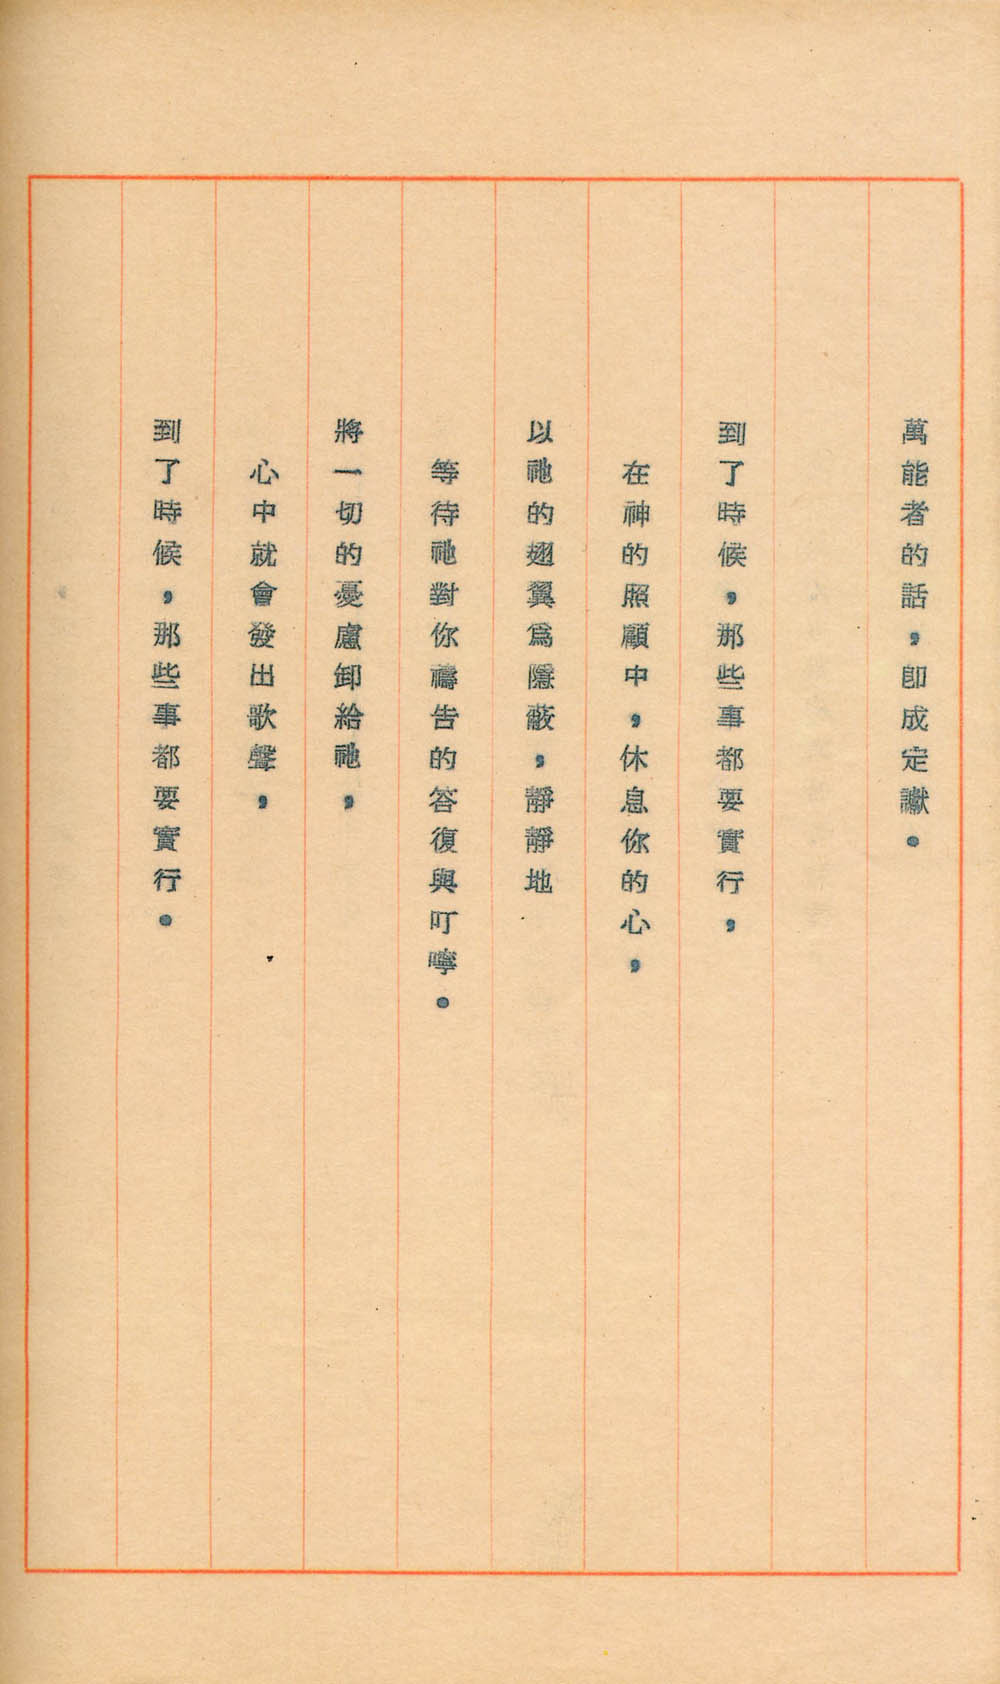 萬能者的話，卽成定讞。
到了時候，那些事都要實行，
在神的照顧中，休息你的心，
以祂的翅翼爲隱蔽，靜靜地
等待祂對你禱告的答復與叮嚀。
將一切的憂慮卸給祂，
心中就會發出歌聲，
到了時候，那些事都要實行。